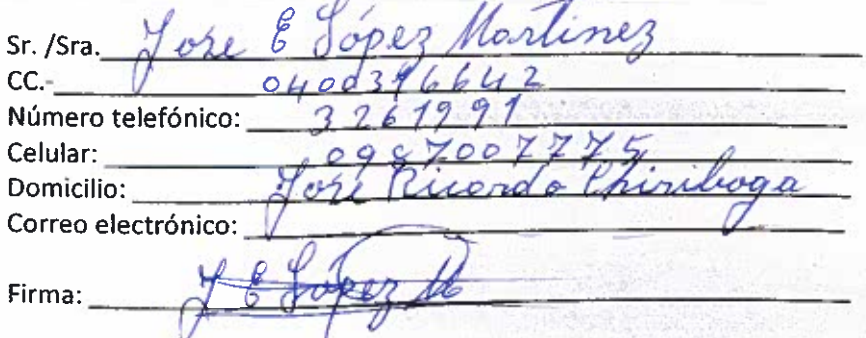 Sr. /Sra. Jose E López Martinez
CC.- 0400316642
Número telefónico: 3261991
Celular: 0987007775
Domicilio: José Ricardo Chiriboga
Correo electrónico:
Firma: J E López M